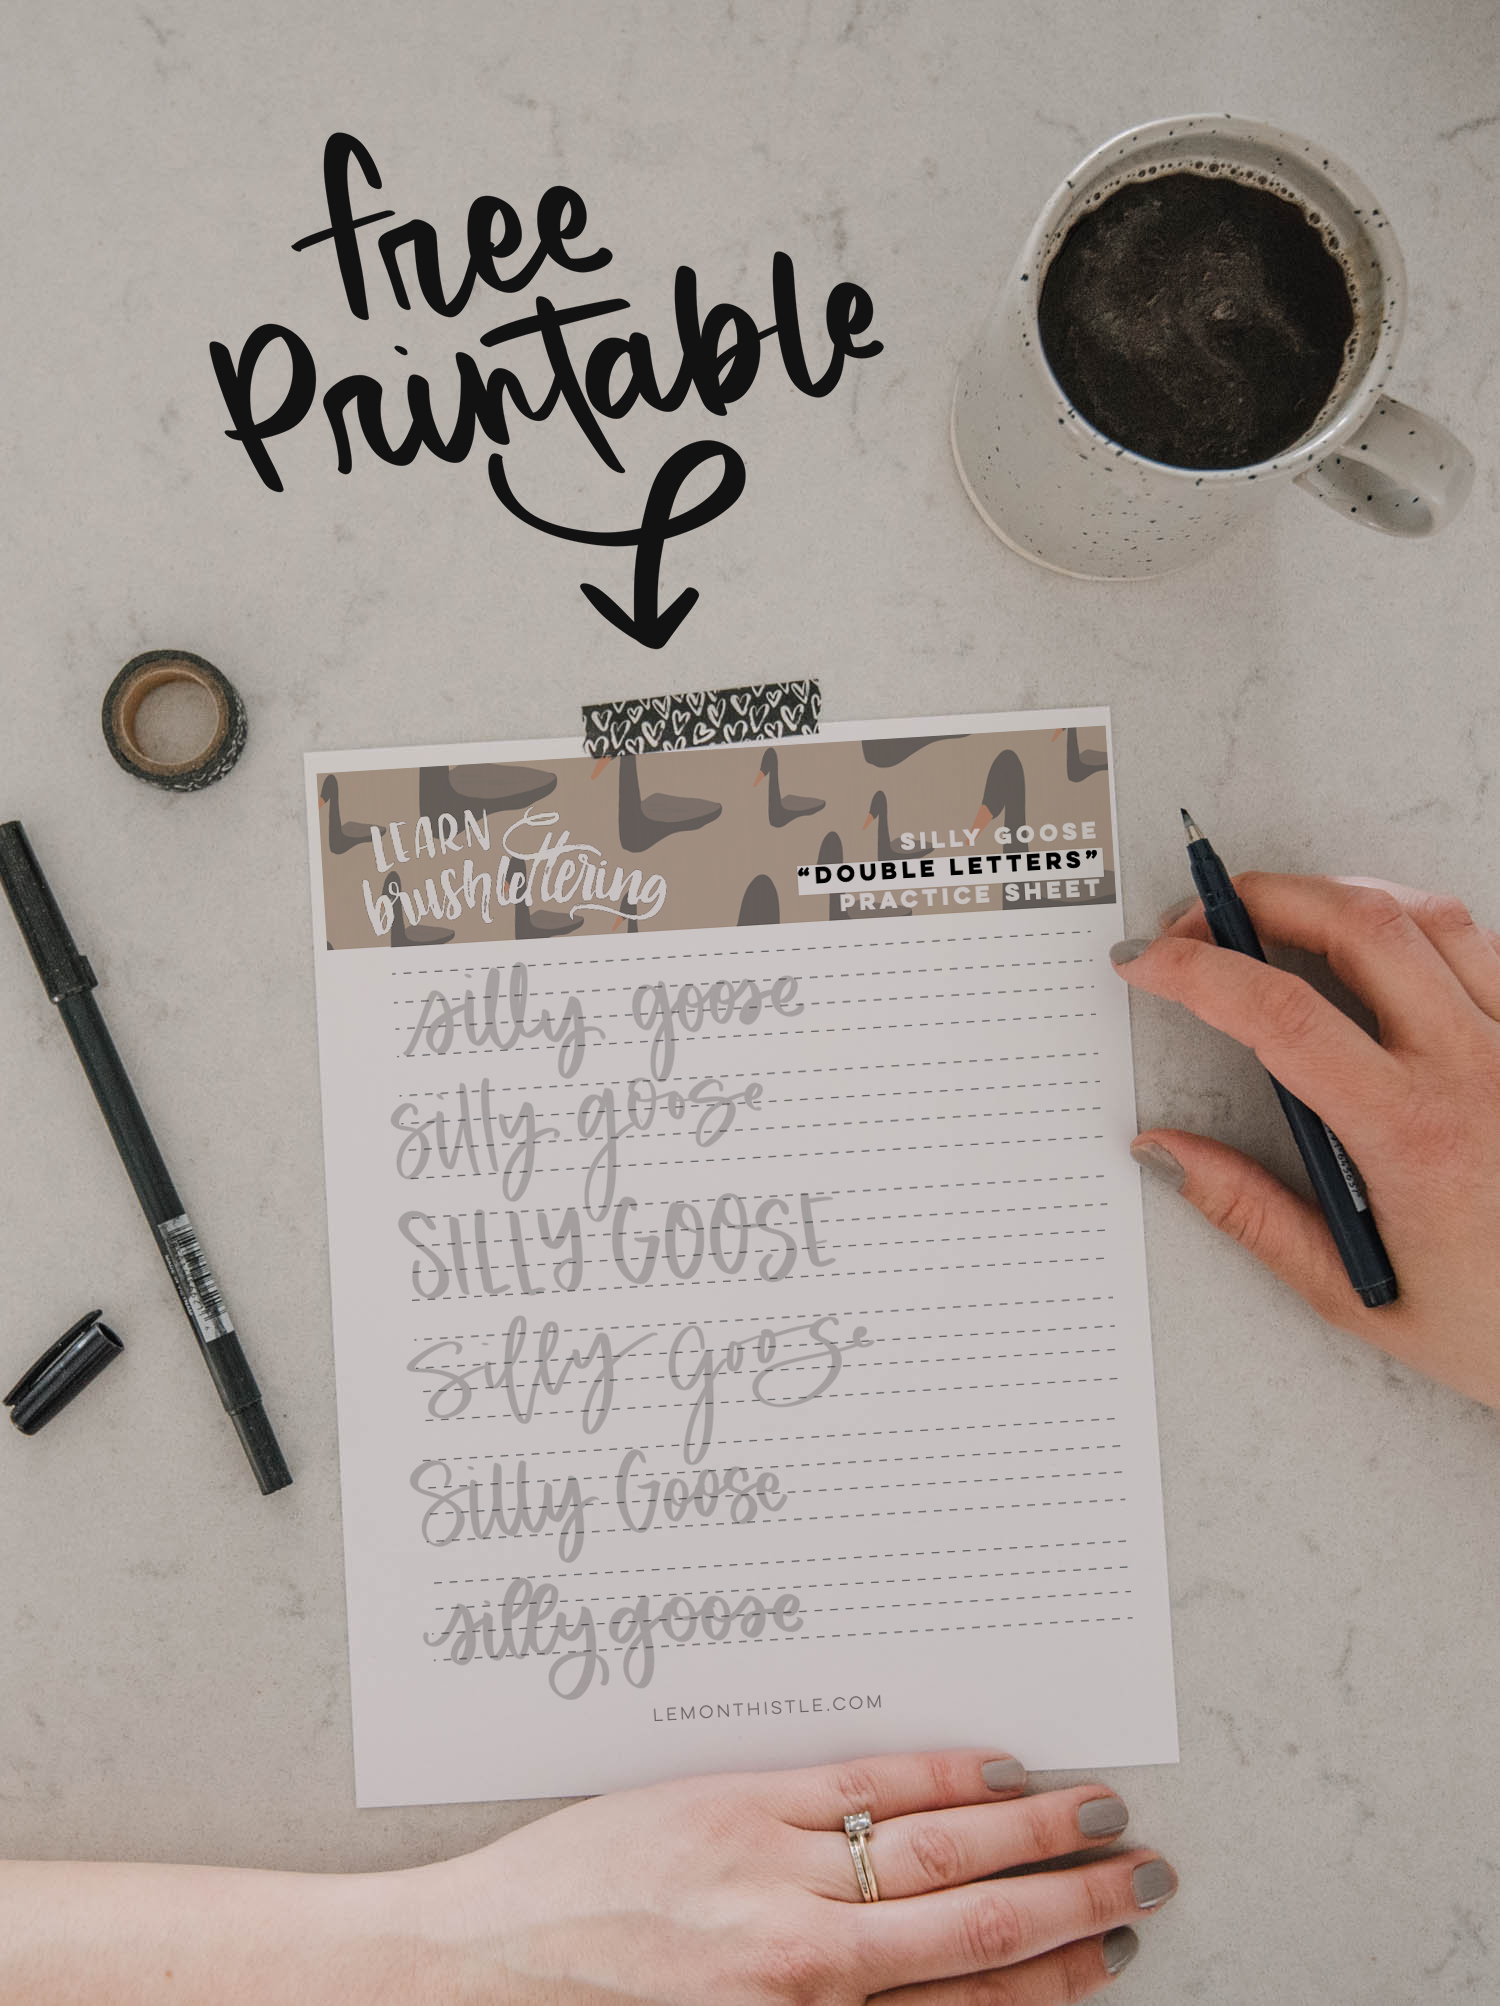 free
Printable
LEARN
brushlettering
SILLY GOOSE
“DOUBLE LETTERS”
PRACTICE SHEET
silly goose
silly goose
SILLY GOOSE
Silly goose
Silly Goose
silly goose
LEMONTHISTLE.COM